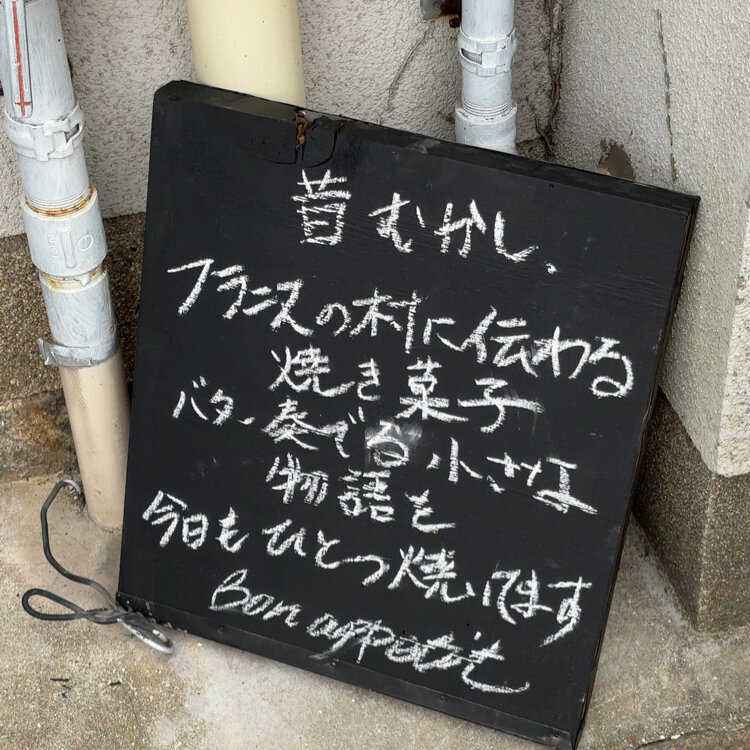 昔むかし、
フランスの村に伝わる
焼き菓子
バター奏でる小さな
物語を
今日もひとつ焼いてます
Bon appétit